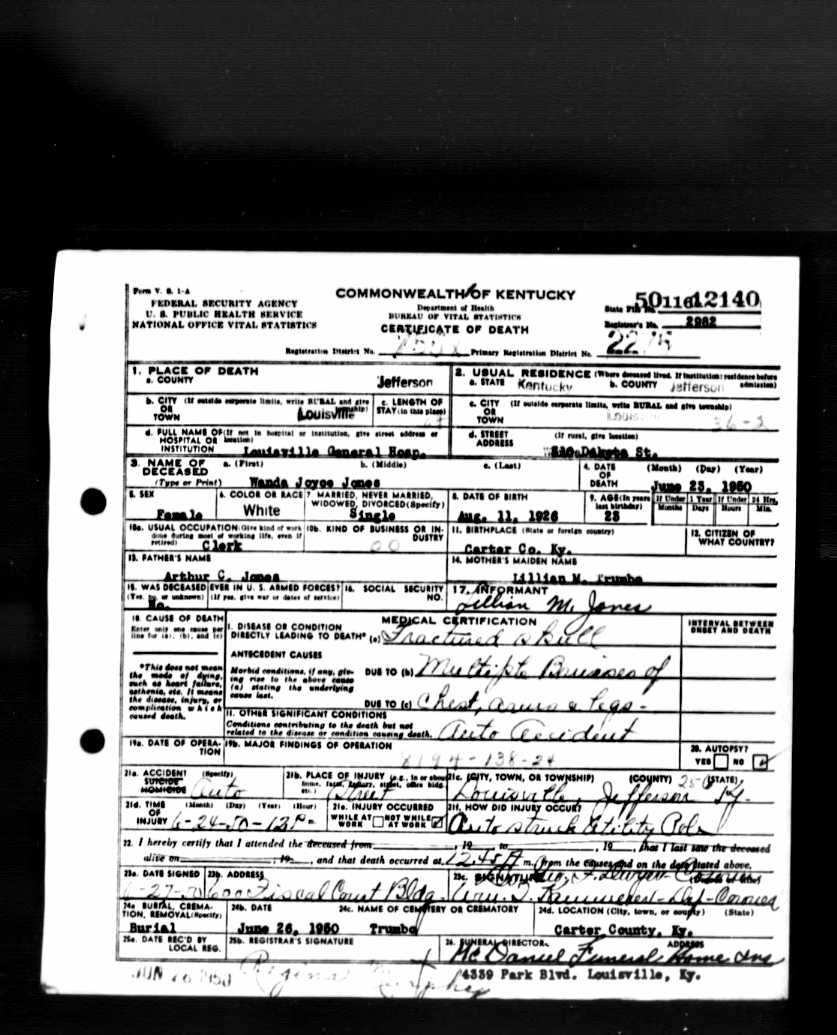 Form V. S. 1-A
FEDERAL SECURITY AGENCY
U. S. PUBLIC HEALTH SERVICE
NATIONAL OFFICE VITAL STATISTICS
COMMONWEALTH OF KENTUCKY
Department of Health
BUREAU OF VITAL STATISTICS
CERTIFICATE OF DEATH
State File No. 50 116 12140
Registrar's No. 2982
Registration District No. Primary Registration District No.
1. PLACE OF DEATH
a. COUNTY Jefferson
2. USUAL RESIDENCE (Where deceased lived. If institution: residence before admission)
a. STATE Kentucky b. COUNTY Jefferson
b. CITY (If outside corporate limits, write RURAL and give township) OR TOWN Louisville
c. LENGTH OF STAY (in this place)
c. CITY (If outside corporate limits, write RURAL and give township) OR TOWN
d. FULL NAME OF (If not in hospital or institution, give street address or location) HOSPITAL OR INSTITUTION Louisville General Hosp.
d. STREET ADDRESS (If rural, give location) Dakota St.
3. NAME OF DECEASED (Type or Print)
a. (First) b. (Middle) c. (Last)
Wanda Joyce Jones
4. DATE OF DEATH (Month) (Day) (Year)
June 25, 1950
5. SEX Female
6. COLOR OR RACE White
7. MARRIED, NEVER MARRIED, WIDOWED, DIVORCED (Specify) Single
8. DATE OF BIRTH Aug. 11, 1926
9. AGE (In years last birthday) 23
If Under 1 Year Months Days
If Under 24 Hrs. Hours Min.
10a. USUAL OCCUPATION (Give kind of work done during most of working life, even if retired) Clerk
10b. KIND OF BUSINESS OR INDUSTRY
11. BIRTHPLACE (State or foreign country) Carter Co. Ky.
12. CITIZEN OF WHAT COUNTRY?
13. FATHER'S NAME
Arthur C. Jones
14. MOTHER'S MAIDEN NAME
Lillian M. Trumbo
15. WAS DECEASED EVER IN U. S. ARMED FORCES? (Yes, no, or unknown) (If yes, give war or dates of service) No.
16. SOCIAL SECURITY NO.
17. INFORMANT
Lillian M. Jones
18. CAUSE OF DEATH
Enter only one cause per line for (a), (b), and (c)
*This does not mean the mode of dying, such as heart failure, asthenia, etc. It means the disease, injury, or complication which caused death.
MEDICAL CERTIFICATION
INTERVAL BETWEEN ONSET AND DEATH
I. DISEASE OR CONDITION DIRECTLY LEADING TO DEATH* (a) Fractured skull
ANTECEDENT CAUSES
Morbid conditions, if any, giving rise to the above cause (a) stating the underlying cause last.
DUE TO (b) Multiple Bruises of
DUE TO (c) Chest, arms & legs-
II. OTHER SIGNIFICANT CONDITIONS
Conditions contributing to the death but not related to the disease or condition causing death. Auto accident
19a. DATE OF OPERATION
19b. MAJOR FINDINGS OF OPERATION
20. AUTOPSY?
YES NO
21a. ACCIDENT SUICIDE HOMICIDE (Specify) Auto
21b. PLACE OF INJURY (e.g., in or about home, farm, factory, street, office bldg., etc.) Street
21c. (CITY, TOWN, OR TOWNSHIP) (COUNTY) (STATE)
Louisville Jefferson Ky.
21d. TIME OF INJURY (Month) (Day) (Year) (Hour)
6-24-50-12 P m.
21e. INJURY OCCURRED
WHILE AT WORK NOT WHILE AT WORK
21f. HOW DID INJURY OCCUR?
Auto struck Utility Pole
22. I hereby certify that I attended the deceased from , 19 to , 19 , that I last saw the deceased
alive on , 19 , and that death occurred at 12:45 A m., from the causes and on the date stated above.
23a. DATE SIGNED 6-27-50
23b. ADDRESS Fiscal Court Bldg.
23c. SIGNATURE
24a. BURIAL, CREMATION, REMOVAL (Specify) Burial
24b. DATE June 26, 1950
24c. NAME OF CEMETERY OR CREMATORY Trumbo
24d. LOCATION (City, town, or county) (State)
Carter County, Ky.
25a. DATE REC'D BY LOCAL REG.
25b. REGISTRAR'S SIGNATURE
26. FUNERAL DIRECTOR ADDRESS
McDaniel Funeral Home Inc
4339 Park Blvd. Louisville, Ky.